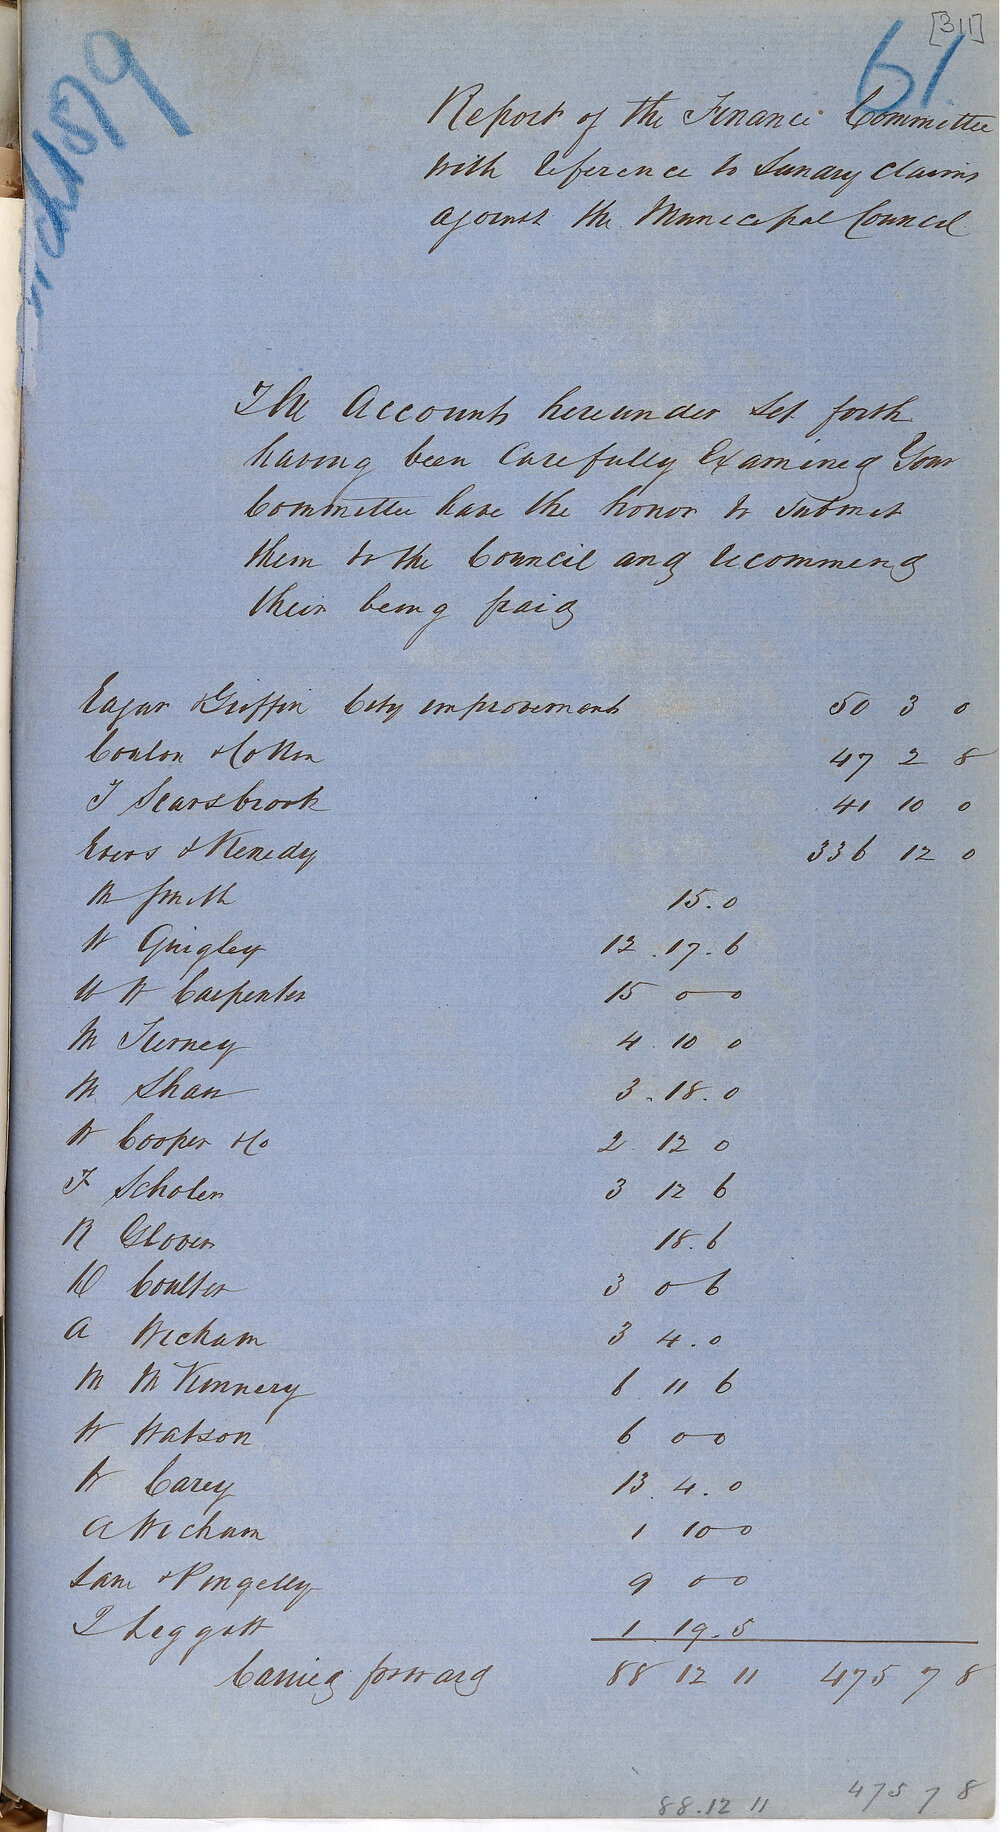 [311]
61.
1879
Report of the Finance Committee
with reference to Sundry Claims
against the Municipal Council.
The Accounts hereunder set forth
having been Carefully Examined Your
Committee have the honor to submit
them to the Council and recommend
their being paid
Edgar & Griffin City improvements 50 3 0
47 2 8
T Scarsbrook 41 10 0
Evers & Kenedy 336 12 0
M Smith 15. 0
W Quigley 12. 17. 6
W W Carpenter 15 0 0
M Tierney 4 10 0
M Shaw 3. 18. 0
W Cooper & Co 2 12 0
F Scholes 3 12 6
R Glover 18. 6
Coulter 3 0 6
A Wecham 3 4. 0
M McKinnery 6 11 6
W Watson 6 0 0
W Carey 13. 4. 0
A Wecham 1 10 0
Lane & Pengelly 9 0 0
Leggatt 1 19. 5
Carried forward 88 12 11 475 7 8
88. 12 11 475 7 8